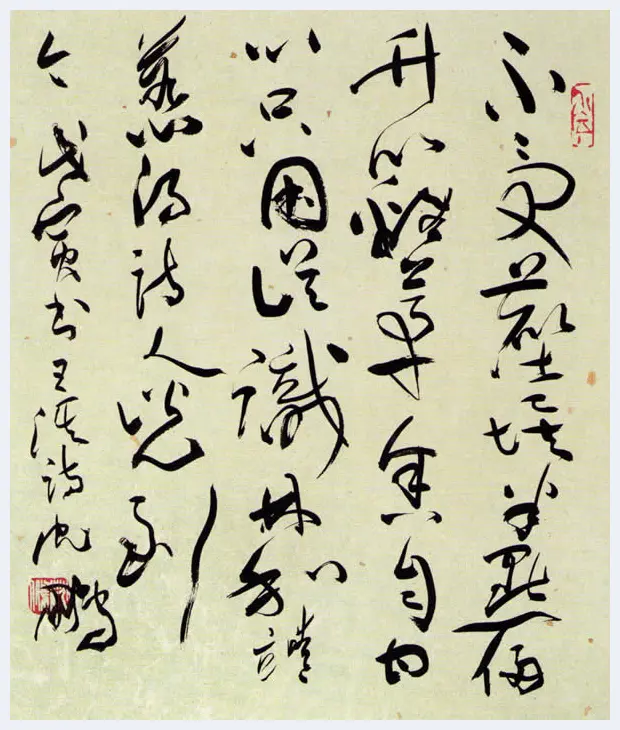 不受塵埃半點侵
竹籬茅舍自甘
心只因誤識林和靖
惹得詩人說到
今 戊寅書王淇詩 沈鵬